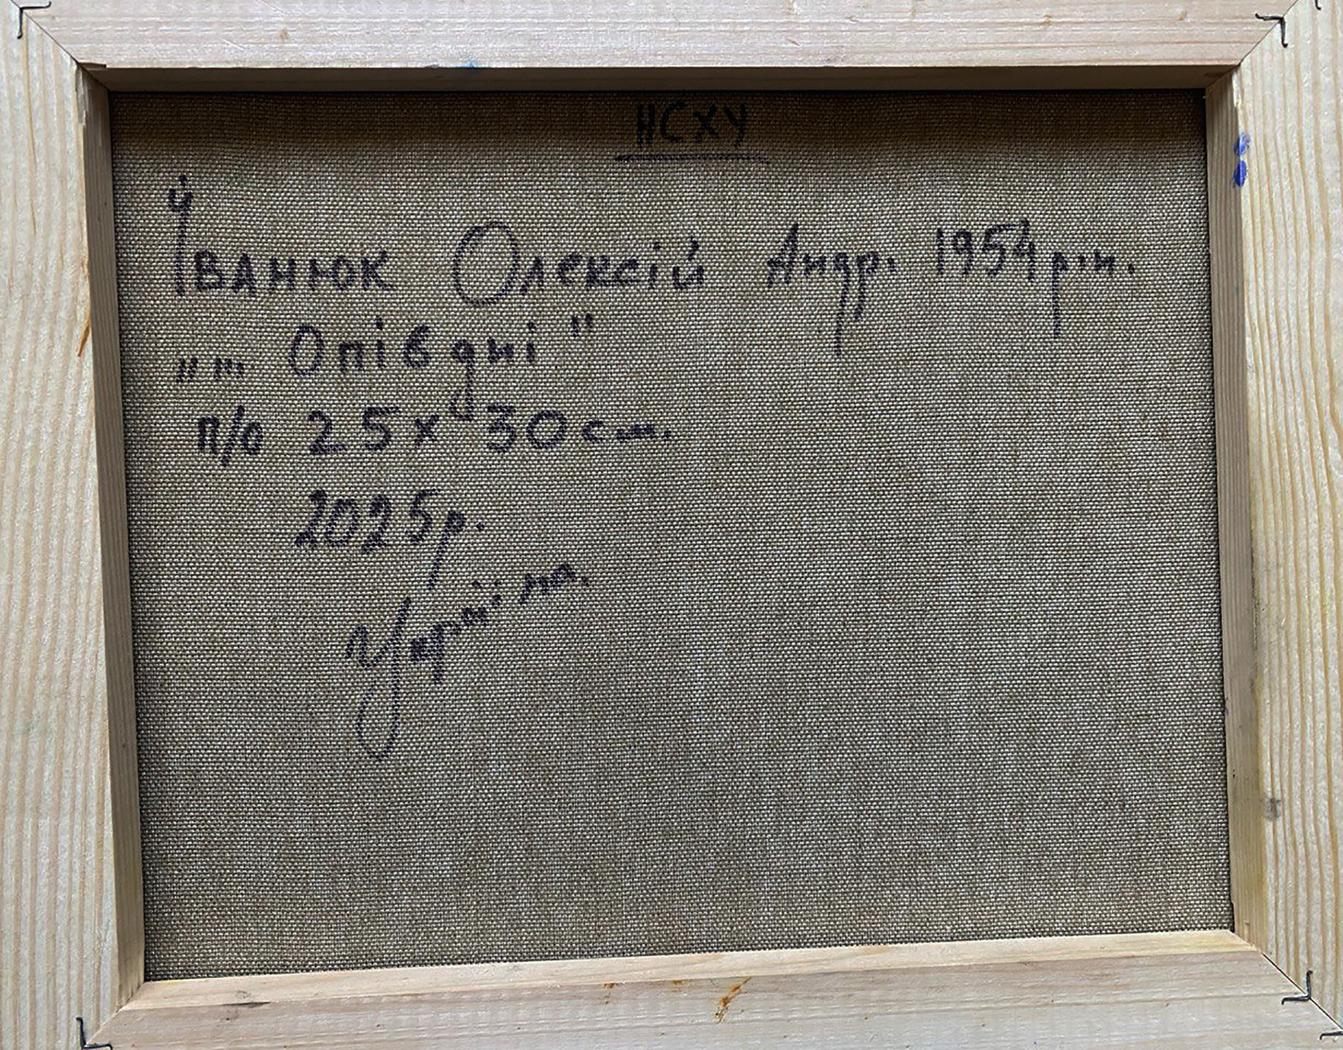 НСХУ
Іванюк Олексій Андр. 1954 р.н.
„... Опівдні"
п/о 25х30см.
2025р.
Україна.